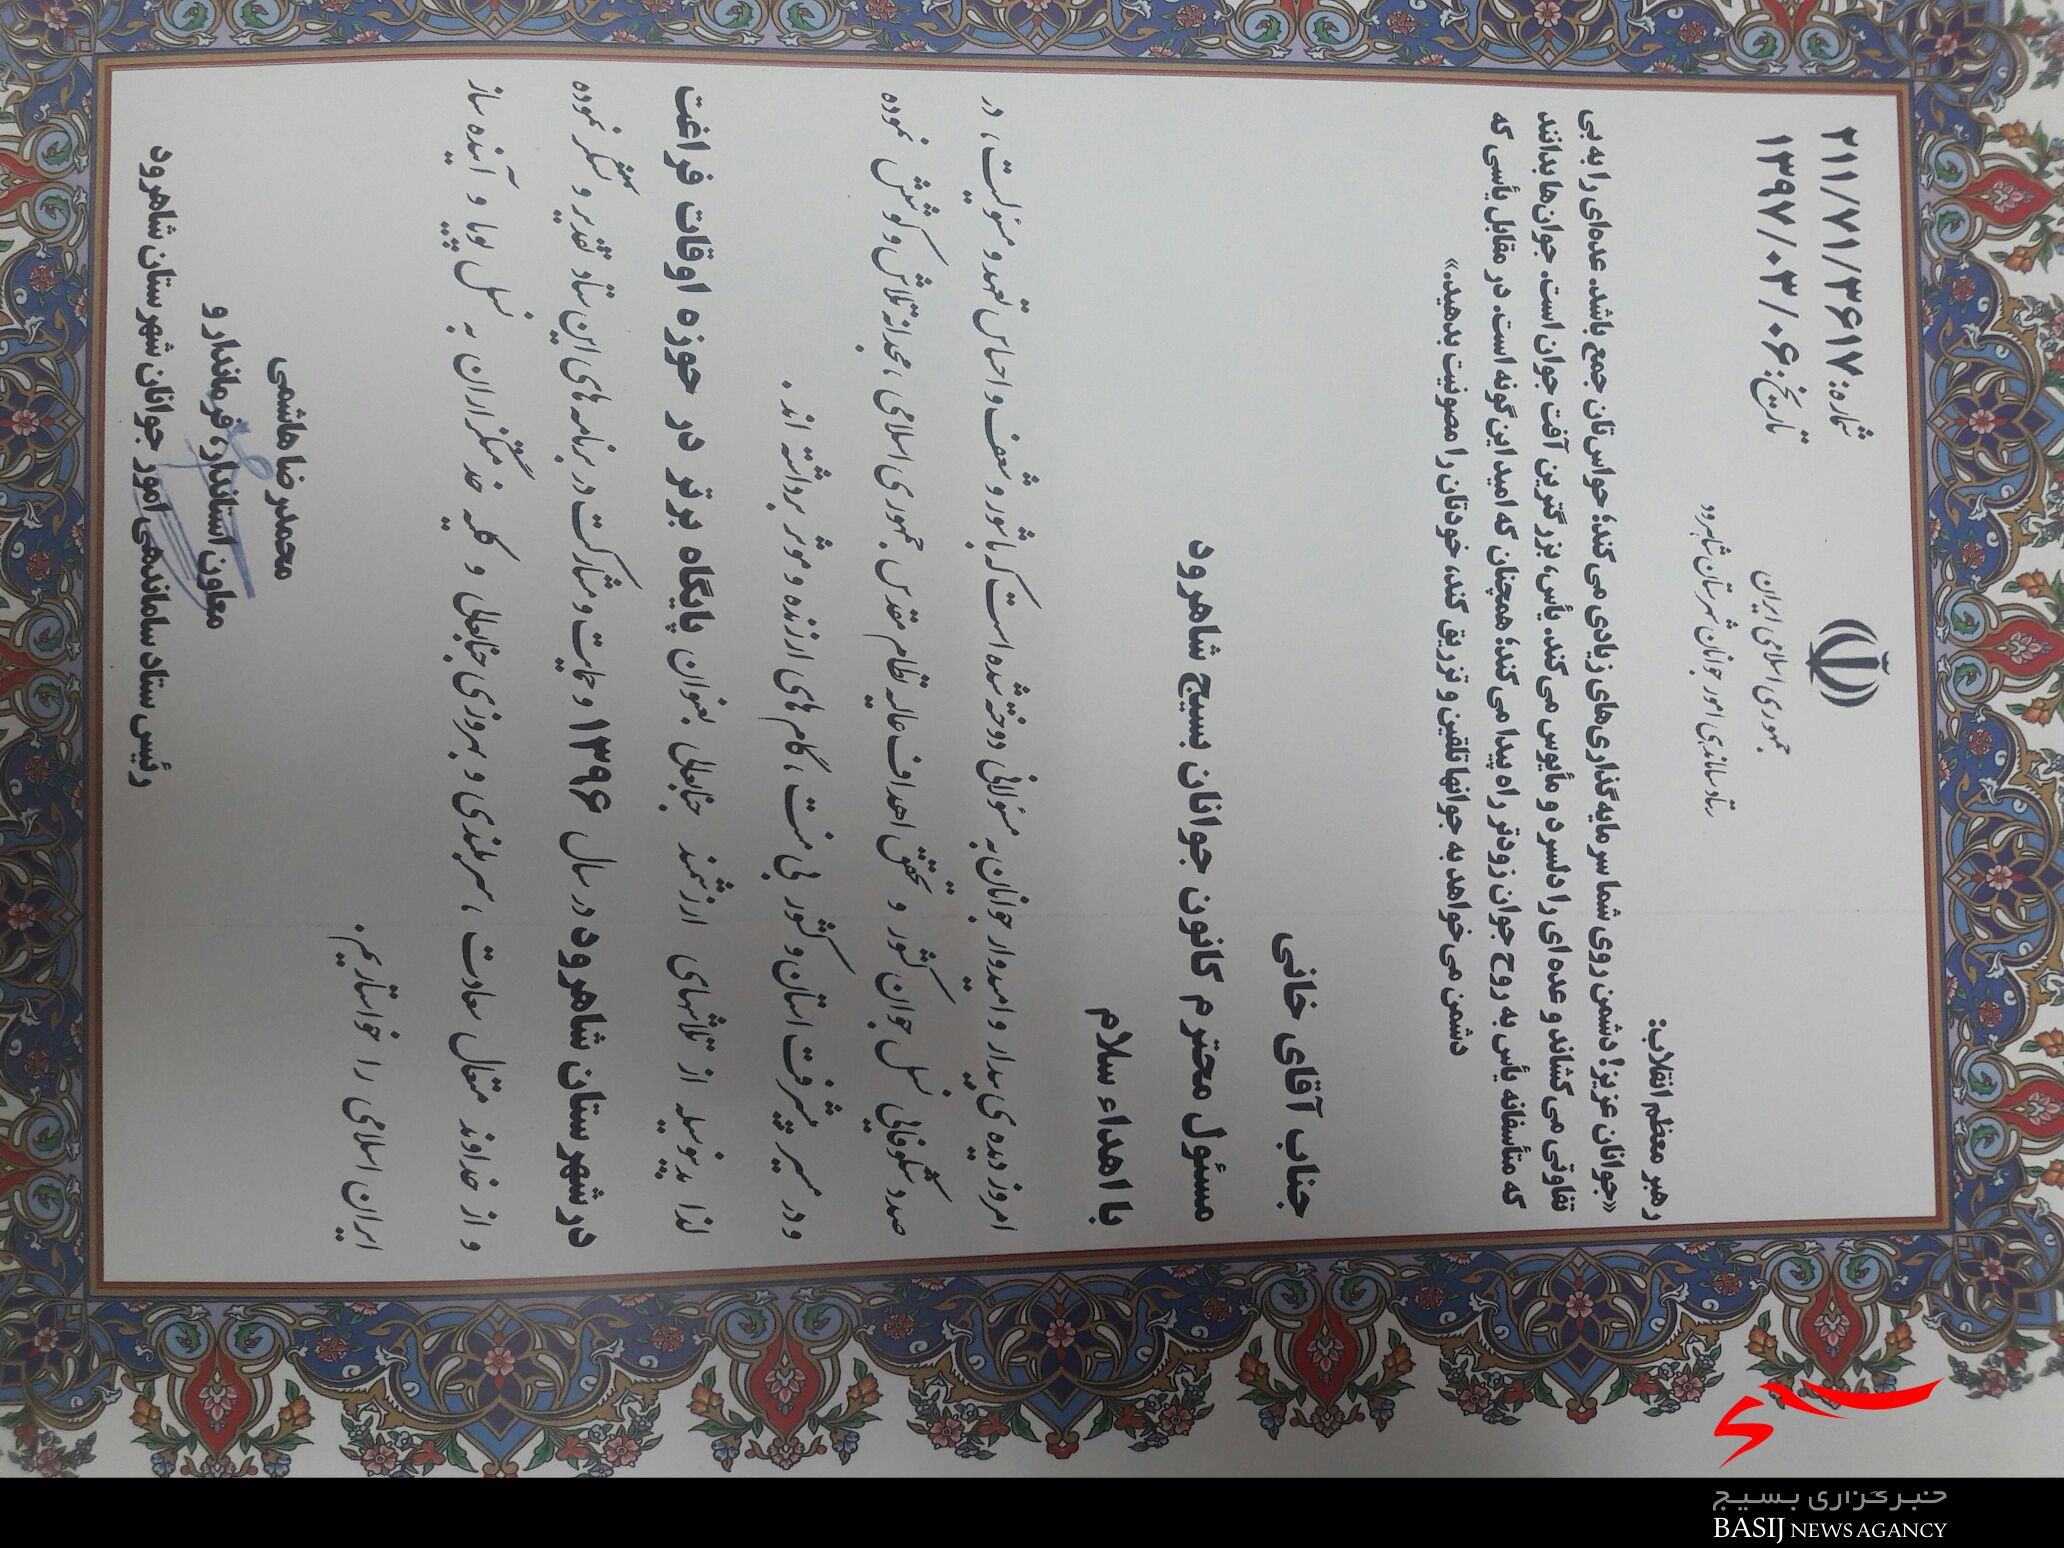 شماره: ۲۱۱/۷۱/۳۶۱۷
تاریخ: ۱۳۹۷/۰۳/۰۶
جمهوری اسلامی ایران
ستاد ساماندهی امور جوانان شهرستان شاهرود
رهبر معظم انقلاب:
«جوانان عزیز! دشمن روی شما سرمایه‌گذاری‌های زیادی می‌کند؛ حواس‌تان جمع باشد. عده‌ای را به بی
تفاوتی می‌کشاند و عده ای را دلسرد و مأیوس می‌کند. یأس، بزرگترین آفت جوان است. جوان‌ها بدانند
که متأسفانه یأس به روح جوان زودتر راه پیدا می‌کند؛ همچنان که امید این گونه است. در مقابل یأسی که
دشمن می‌خواهد به جوانها تلقین و تزریق کند، خودتان را مصونیت بدهید.»
جناب آقای خانی
مسئول محترم کانون جوانان بسیج شاهرود
با اهداء سلام
امروز دیده ی بیدار و امیدوار جوانان به مسئولانی دوخته شده است که با شور و شعف و احساس تعهد و مسئولیت، در
صدد شکوفایی نسل جوان کشور و تحقق اهداف عالیه نظام مقدس جمهوری اسلامی، مجدانه تلاش و کوشش نموده
و در مسیر پیشرفت استان و کشور بی منت، گام های ارزنده و موثر برداشته اند.
لذا بدینوسیله از تلاشهای ارزشمند جنابعالی بعنوان پایگاه برتر در حوزه اوقات فراغت
در شهرستان شاهرود در سال ۱۳۹۶ و حمایت و مشارکت در برنامه های این ستاد تقدیر و تشکر نموده
و از خداوند متعال سعادت، سربلندی و بهروزی جنابعالی و کلیه خدمتگزاران به نسل پویا و آینده ساز
ایران اسلامی را خواستاریم.
محمدرضا هاشمی
معاون استاندار، فرماندار و
رئیس ستاد ساماندهی امور جوانان شهرستان شاهرود
بسیج
خبرگزاری بسیج
BASIJ NEWS AGANCY